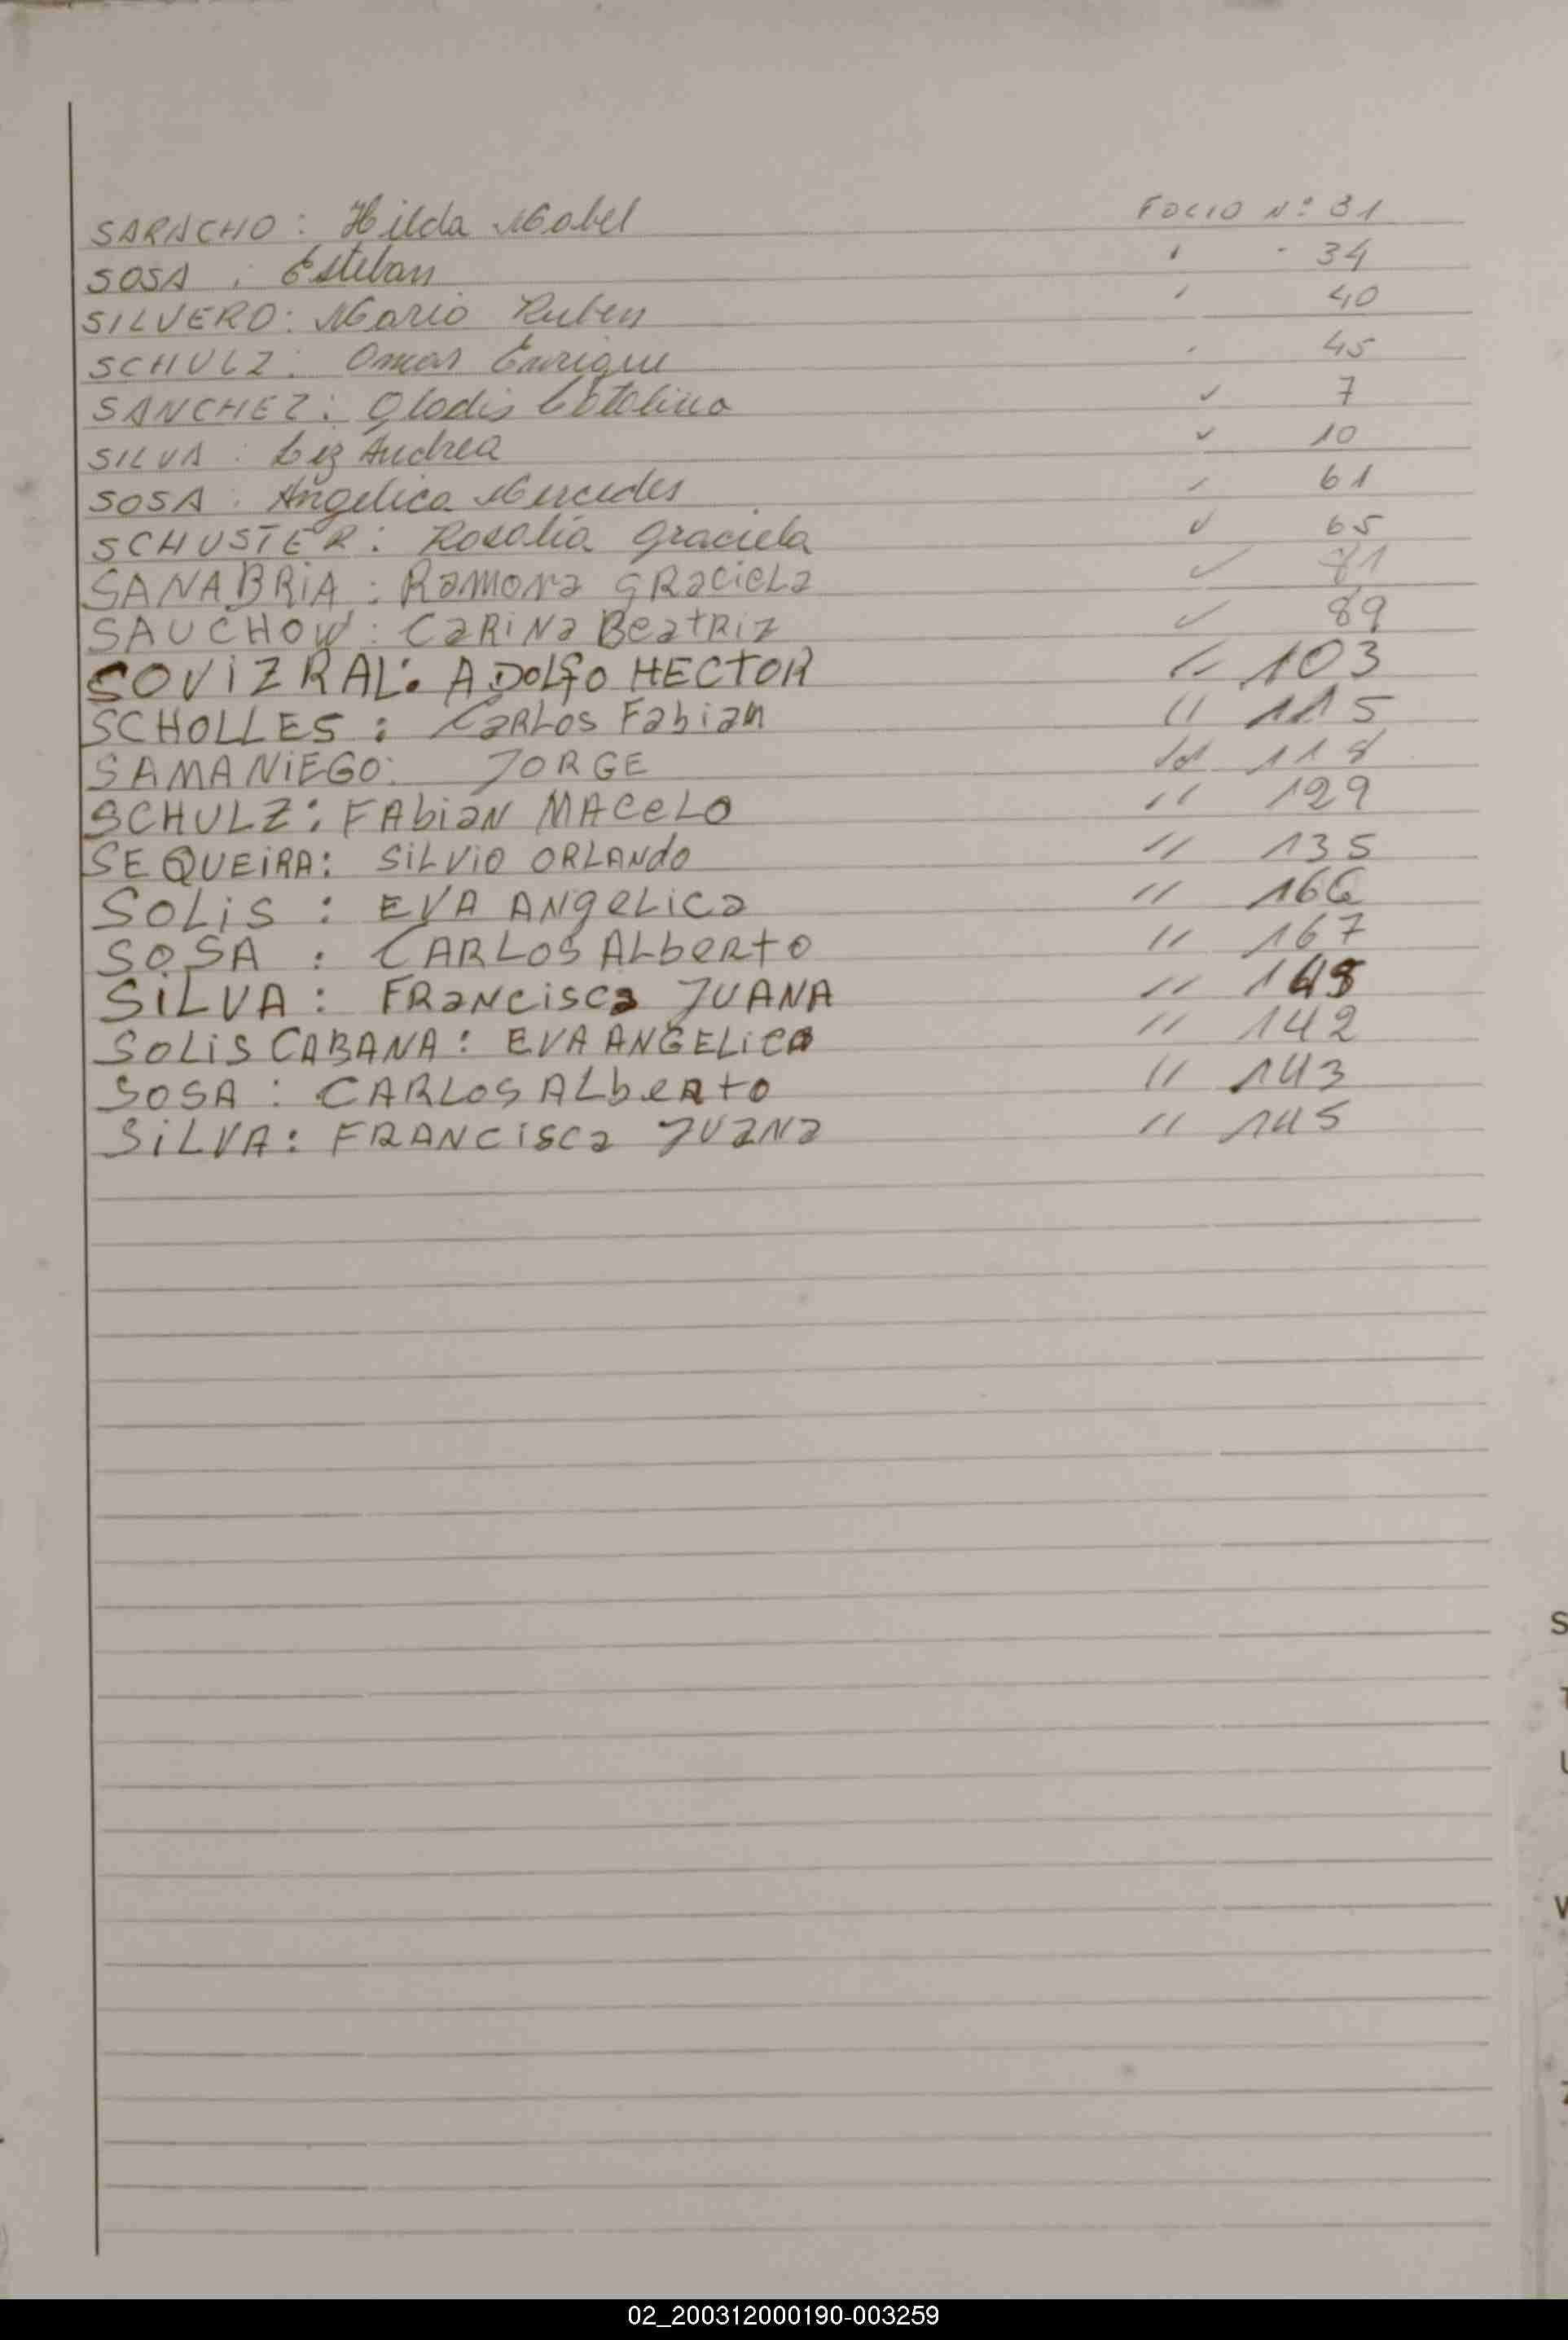 SARACHO : Hilda Mabel FOLIO Nº 31
SOSA : Esteban ' - 34
SILVERO : Mario Ruben ' 40
SCHULZ : Omar Enrique ' 45
SANCHEZ : Gladis Catalina ✓ 7
SILVA : Liz Andrea ✓ 10
SOSA : Angelica Mercedes ✓ 61
SCHUSTER : Rosalia Graciela ✓ 65
SANABRIA : Ramona GRaciela ✓ 81
SAUCHOW : CaRiNa BeatRiz ✓ 89
SOVIZRAL : ADOLFO HECTOR " 103
SCHOLLES : CaRLos Fabian " 115
SAMANiEGO : JORGE 118
SCHULZ : FAbiaN MACeLO " 129
SEQUEiRA : SiLViO ORLANdO " 135
SOLiS : EVA ANgeLica " 166
SOSA : CARLOS ALbeRto " 167
SiLVA : FRaNcisca JUANA "
SOLiS CABANA : EVA ANGELica " 142
SOSA : CARLOS ALbeRto " 143
SiLVA : FRANCisca JUaNa " 145
S
T
U
V
Z
02_200312000190-003259